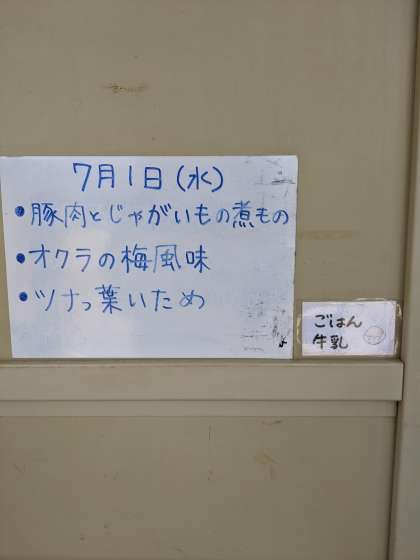 7月1日(水)
•豚肉とじゃがいもの煮もの
•オクラの梅風味
•ツナっ葉いため
ごはん
牛乳